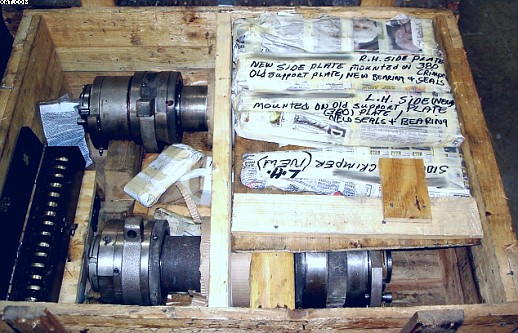 OAT.COM
R.H. SIDE PLATE
NEW SIDE PLATE MOUNTED ON 3RD
OLD SUPPORT PLATE, NEW BEARING & SEALS
CRIMPER
L.H. SIDE (NEW)
MOUNTED ON OLD SUPPORT PLATE
PLATE
SEALS & BEARING
SIDE
L.H. CRIMPER (NEW)